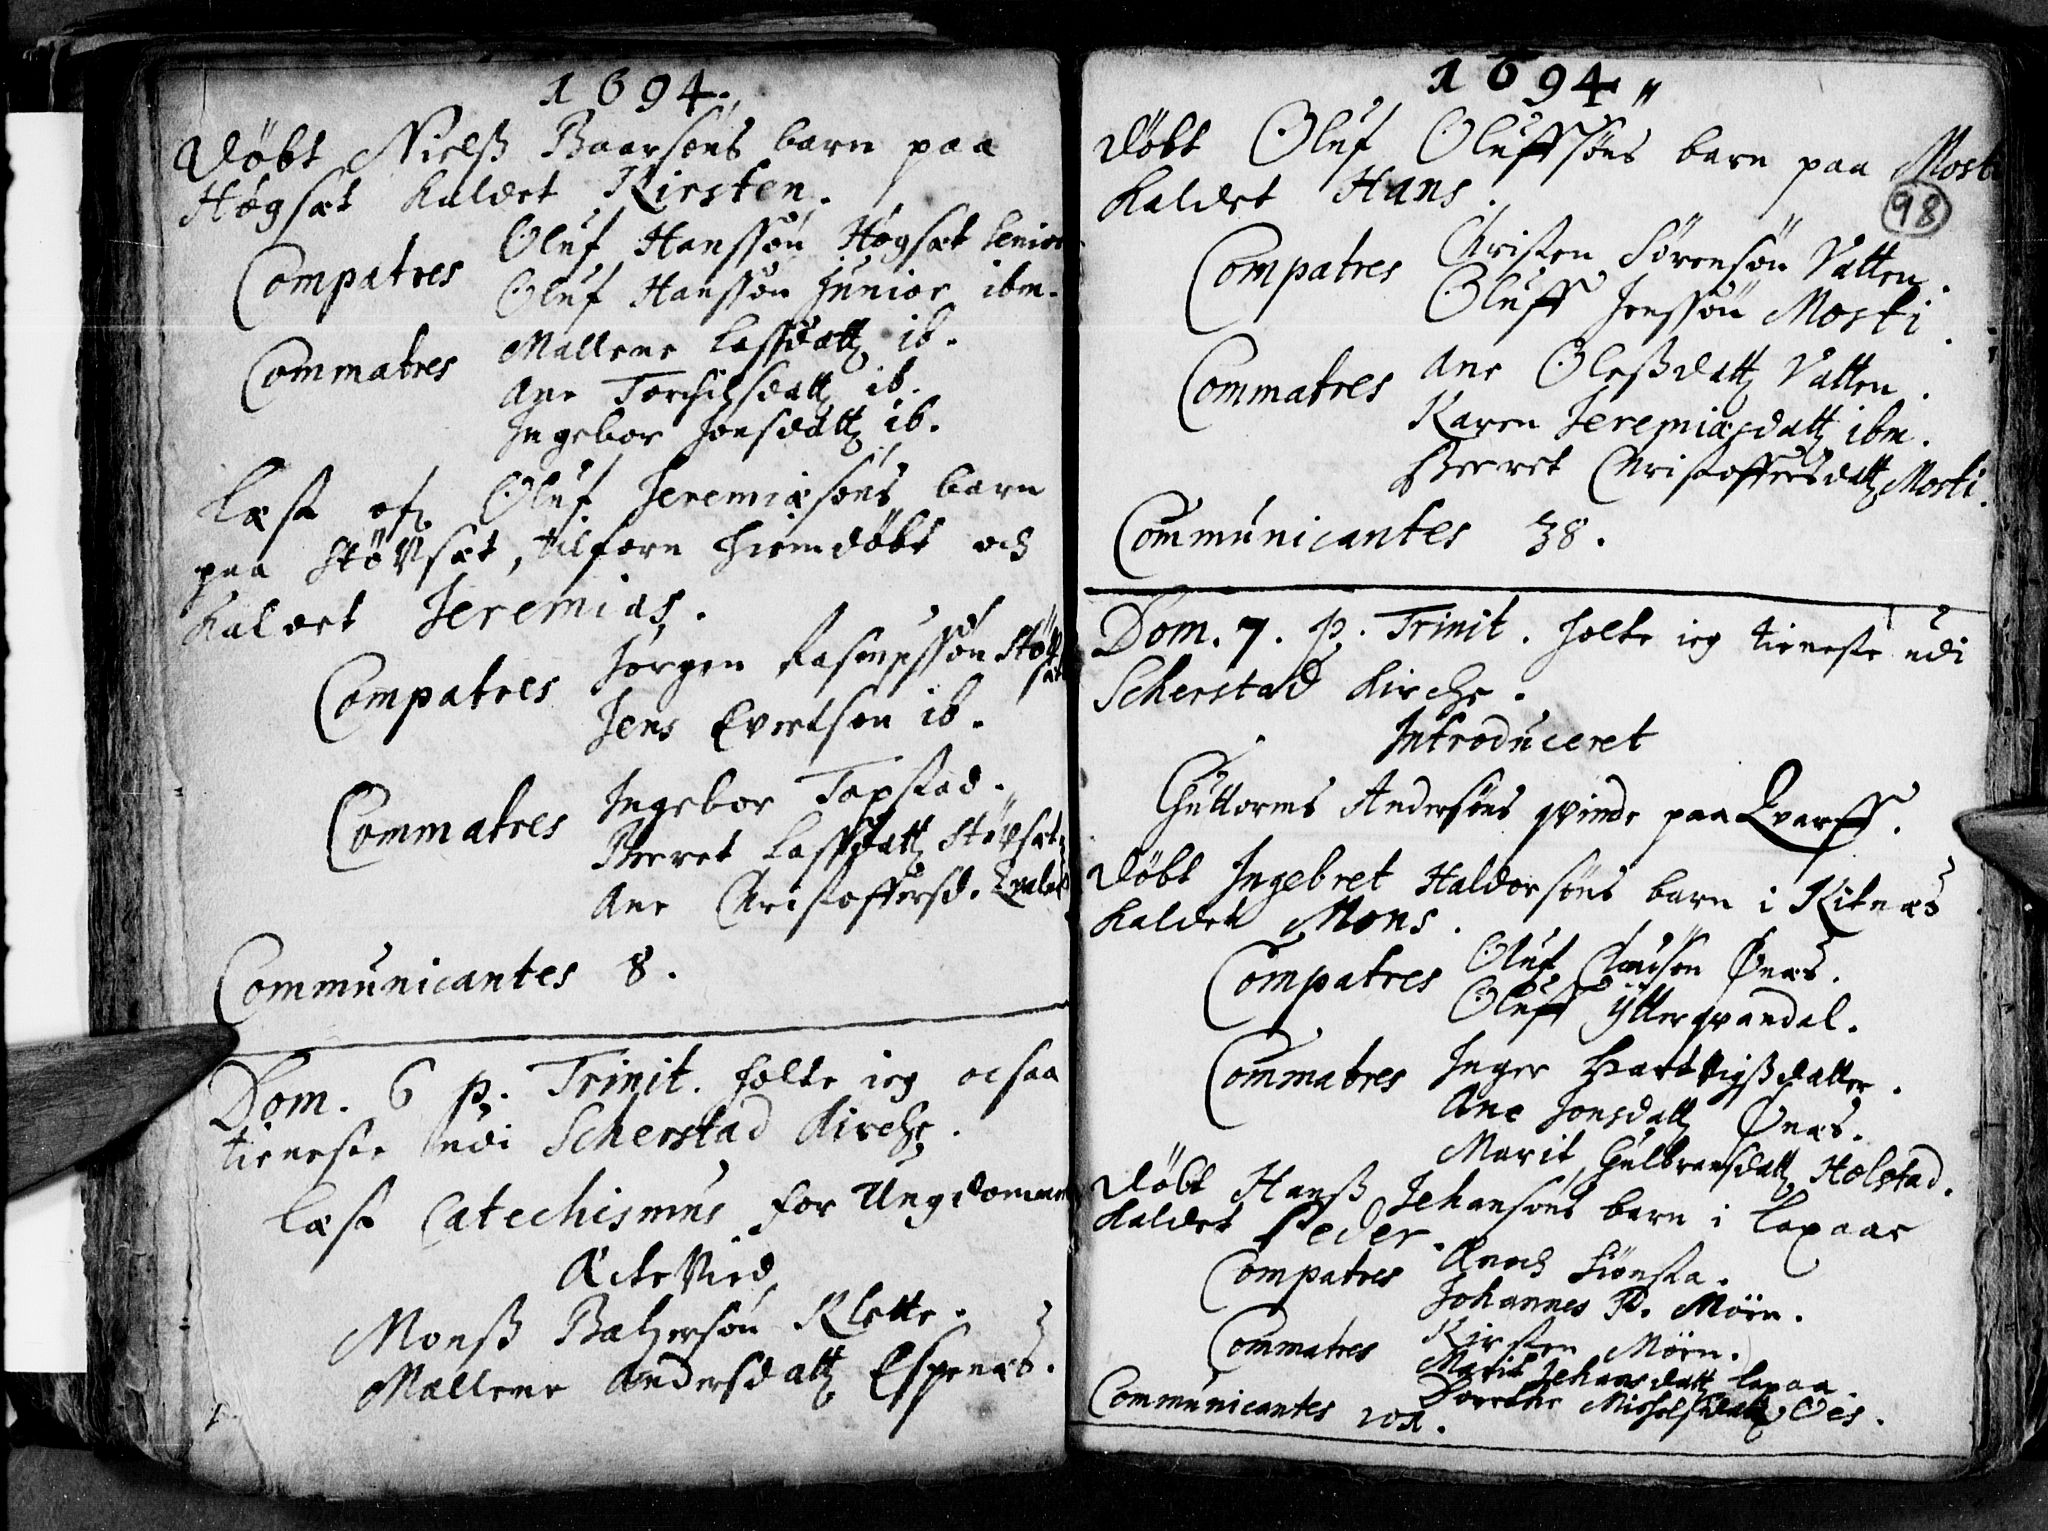 1694.
Döbt Nielß Baarsöns barn paa
Högsæt kaldet Kirsten.
Compatres Oluf Hanssön Högsæt Senior
Oluf Hanssön Junior ibm.
Commatres Mallene Lassdatt ib.
Ane Torchilsdatt ib.
Ingebor Jonsdatt ib.
Læst ofr Oluf Jeremiæsöns barn
paa Stövsæt, tilforn hiemdöbt och
kaldet Jeremias.
Compatres Jörgen Rasmussön Stöv
sæt
Jens Evertsön ib.
Commatres Ingebor Tapstad.
Berret Lassdatt Stövsæt
Ane Christoffersd.
Communicantes 8.
Dom. 6 p. Trinit. holte ieg ocsaa
tieneste udi Scherstad Kirche.
Læst Catechismus for Ungdommen
Æcte Vied
Monß Baltzersön Klette.
Mallene Andersdatt Espenæs.
1694
Döbt Oluf Oluffsöns barn paa Mosti
kaldet Hans.
98
Compatres Christen Sörensön Vatten.
Oluff Jenssön Mosti.
Commatres Ane Oleßdatt Vatten.
Karen Jeremiædatt ibm.
Berret Christoffersdatt Mosti.
Communicantes 38.
Dom. 7. p. Trinit. holte ieg tieneste udi
Scherstad Kirche.
Introduceret
Guttorms Andersöns qvinde paa Qvarff.
Döbt Ingebret Haldorsöns barn i Kitnæs
kaldet Mons.
Compatres Oluf Clausön Önæs.
Oluff Ÿtterqvandal.
Commatres Inger Hartvigßdatter.
Ane Jonsdatt Önæs.
Marit Gulbransdatt Holstad.
Döbt Hanß Jehansöns barn i Laxaae
kaldet Peder.
Compatres Anoch Siönsta.
Johannes P. Mörn.
Commatres Kirsten Mörn.
Marit Jehansdatt Laxaa.
Dorethe Michelsdatt Oes.
Communicantes 101.